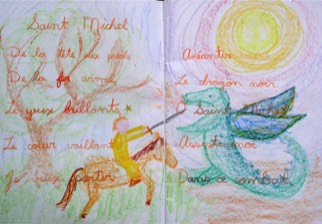 Saint Michel
De la tête aux pieds
De la armé
Le yeux brillants
Le cœur vaillant
Je veux partir
Anéantir
Le dragon noir
O Saint Michel
Assiste moi
Dans ce combat